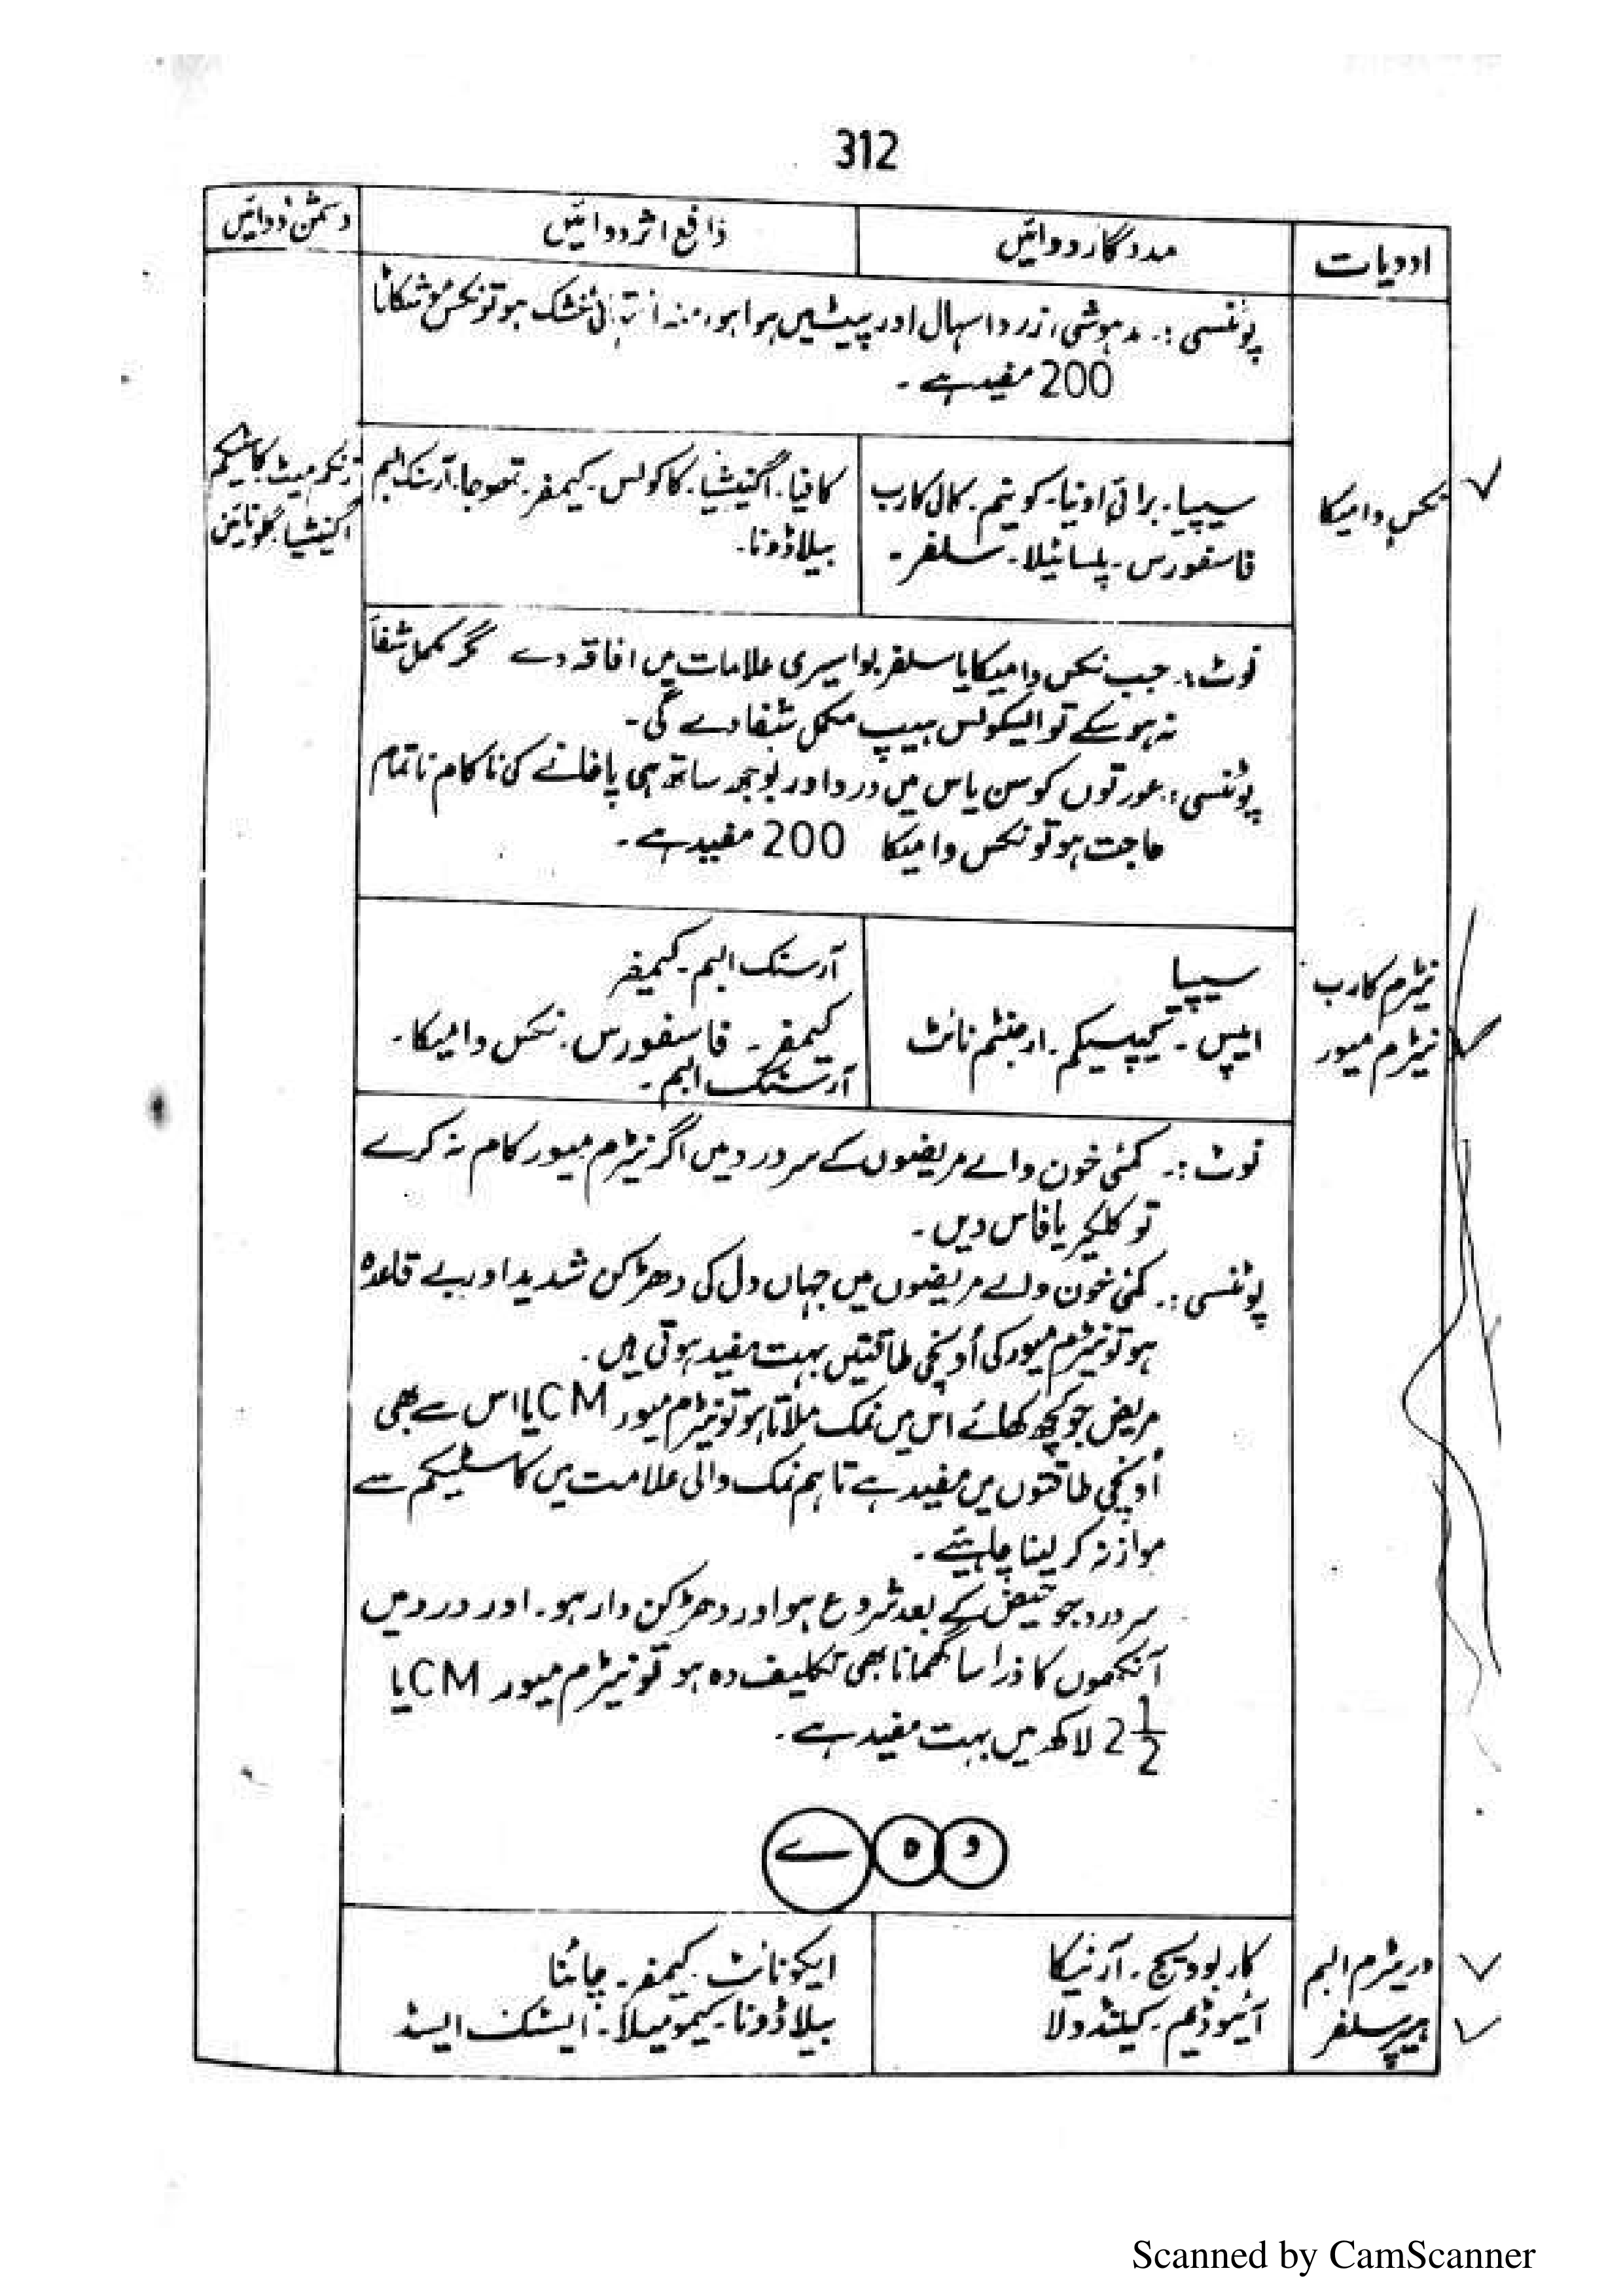 312
ادویات	مددگار دوائیں	دافع اثر دوائیں	دشمن دوائیں
پوٹنسی :۔ مدہوشی، زرد اسہال اور پیٹ میں ہوا ہو، منہ انتہائی خشک ہو تو نکس موشکاٹا
200 مفید ہے ۔
نکس وامیکا
سیپیا۔ برائی اونیا۔ کونیم۔ کالی کارب
فاسفورس۔ پلساٹیلا۔ سلفر۔
کافیا۔ اگنیشیا۔ کاکولس۔ کیمفر۔ تھوجا۔ آرسنک البم
بیلاڈونا۔
زنکم میٹ۔ کاسٹیکم
اگنیشیا۔
نوٹ :۔ جب نکس وامیکا یا سلفر بواسیری علامات میں افاقہ دے مگر مکمل شفا
نہ ہو سکے تو ایسکولس ہیپ مکمل شفا دے گی۔
پوٹنسی :۔ عورتوں کو سن یاس میں درد اور بوجھ ساتھ ہی پاخانے کی ناکام ناتمام
حاجت ہو تو نکس وامیکا 200 مفید ہے ۔
نیٹرم کارب
سیپیا
آرسنک البم۔ کیمفر
نیٹرم میور
ایپس ۔ کیپسیکم ۔ ارجنٹم نائٹ
کیمفر ۔ فاسفورس۔ نکس وامیکا۔
آرسنک البم ۔
نوٹ :۔ کمئی خون والے مریضوں کے سر درد میں اگر نیٹرم میور کام نہ کرے
تو کلیکیریا فاس دیں ۔
پوٹنسی :۔ کمئی خون والے مریضوں میں جہاں دل کی دھڑکن شدید اور بے قاعدہ
ہو تو نیٹرم میور کی اُونچی طاقتیں بہت مفید ہوتی ہیں ۔
مریض جو کچھ کھائے اس میں نمک ملاتا ہو تو نیٹرم میور CM یا اس سے بھی
اُونچی طاقتوں میں مفید ہے تاہم نمک والی علامت میں کاسٹیکم سے
موازنہ کر لینا چاہیئے ۔
سر درد جو حیض کے بعد شروع ہو اور دھڑکن دار ہو۔ اور درد میں
آنکھوں کا ذرا سا گھمانا بھی تکلیف دہ ہو تو نیٹرم میور CM یا
2 1/2 لاکھ میں بہت مفید ہے ۔
و ہ ے
وریٹرم البم
کاربوویج ۔ آرنیکا
ایکونائٹ ۔ کیمفر ۔ چائنا
ہیپر سلفر
آئیوڈیم ۔ کیلنڈولا
بیلاڈونا۔ کیمومیلا۔ ایسٹک ایسڈ
Scanned by CamScanner